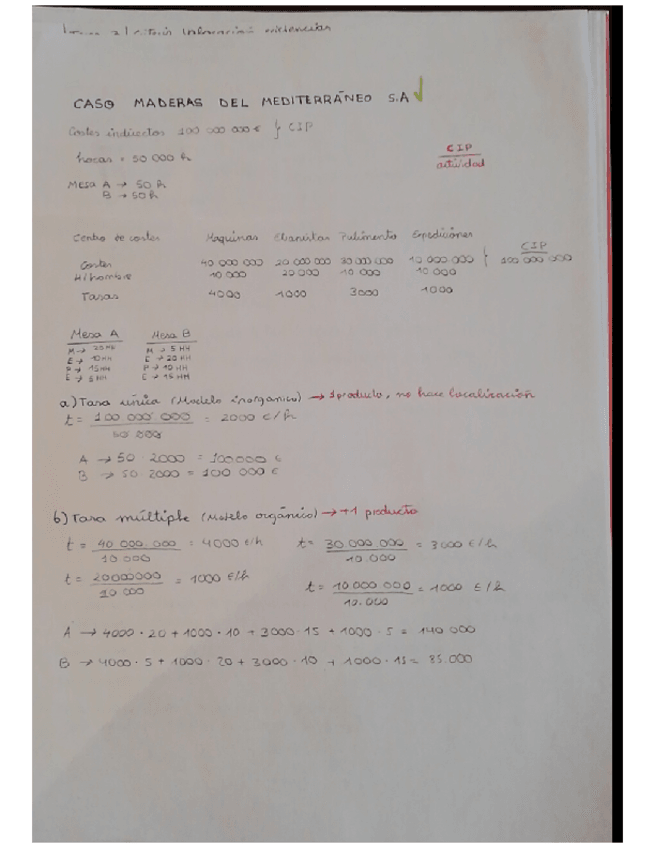 CASO MADERAS DEL MEDITERRÁNEO S.A
Costes indirectos 100 000 000 € } CIP
horas = 50 000 h
CIP
actividad
MESA A → 50 h
B → 50 h
Centro de costes Maquinas Ebanistas Pulimento Expediciones
CIP
Costes 40 000 000 20 000 000 30 000 000 10 000 000 } 100 000 000
H/hombre 10.000 20 000 10 000 10 000
Tasas 4000 1000 3000 1000
Mesa A Mesa B
M → 20 HH M → 5 HH
E → 10 HH E → 20 HH
P → 15 HH P → 10 HH
E → 5 HH E → 15 HH
a) Tasa única (Modelo inorganico) → 1 producto, no hace localización
t = 100 000 000 = 2000 €/h
50 000
A → 50 · 2000 = 100000 €
B → 50 · 2000 = 100 000 €
b) Tasa múltiple (Modelo orgánico) → +1 producto
t = 40 000. 000 = 4000 €/h t = 30.000.000 = 3000 €/h
10 000 10.000
t = 20000000 = 1000 €/h t = 10.000 000 = 1000 €/h
20 000 10.000
A → 4000 · 20 + 1000 · 10 + 3000 · 15 + 1000 · 5 = 140 000
B → 4000 · 5 + 1000 · 20 + 3000 · 10 + 1000 · 15 = 85.000